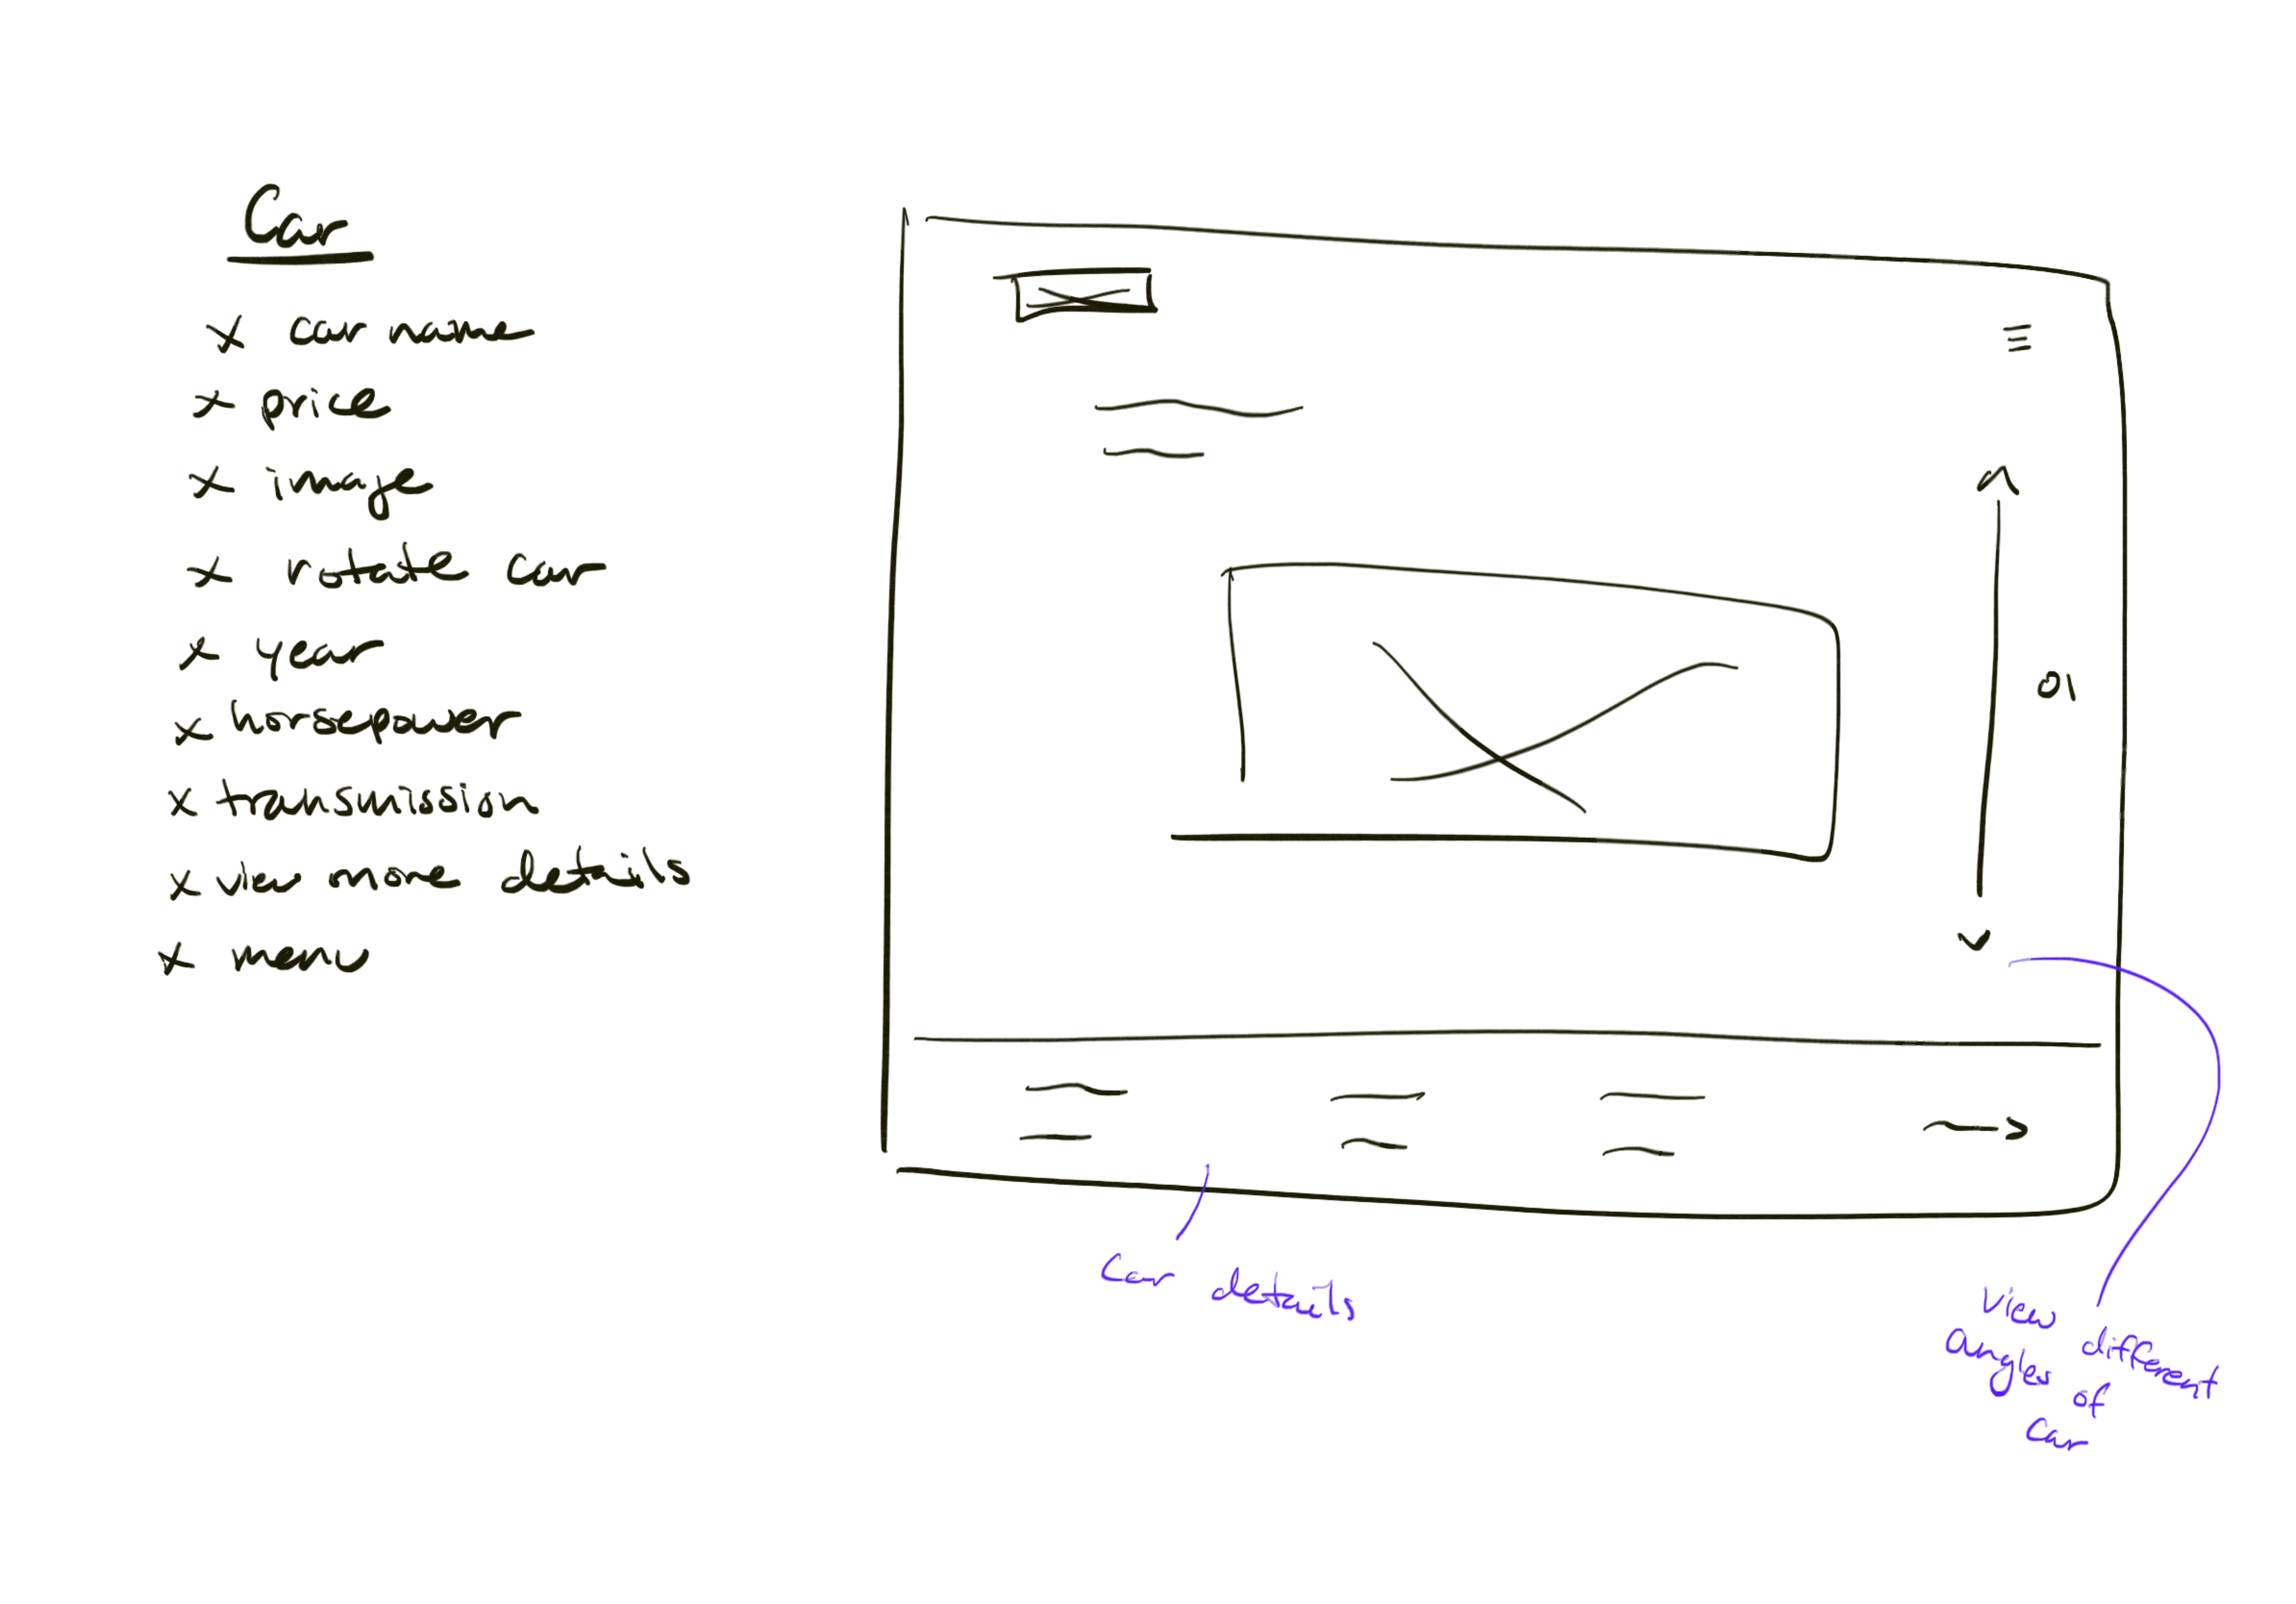 Car
x car name
x price
x image
x rotate car
x year
x horsepower
x transmission
x view more details
x menu
01
Car details
View different
angles of
Car